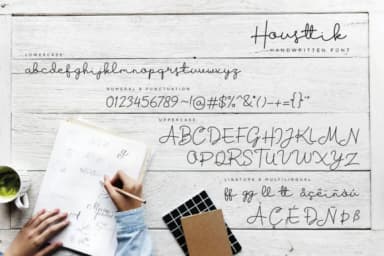 Housttik
HANDWRITTEN FONT
LOWERCASE
abcdefghijklmnopqrstuvwxyz
NUMERAL & PUNCTUATION
0123456789~!@#$%^&*()-+={}"
UPPERCASE
ABCDEFGHIJKLMN
OPQRSTUVWXYZ
LIGATURE & MULTILINGUAL
ff gg ll tt åçëïñòú
ÀÇÉÐÑÞß